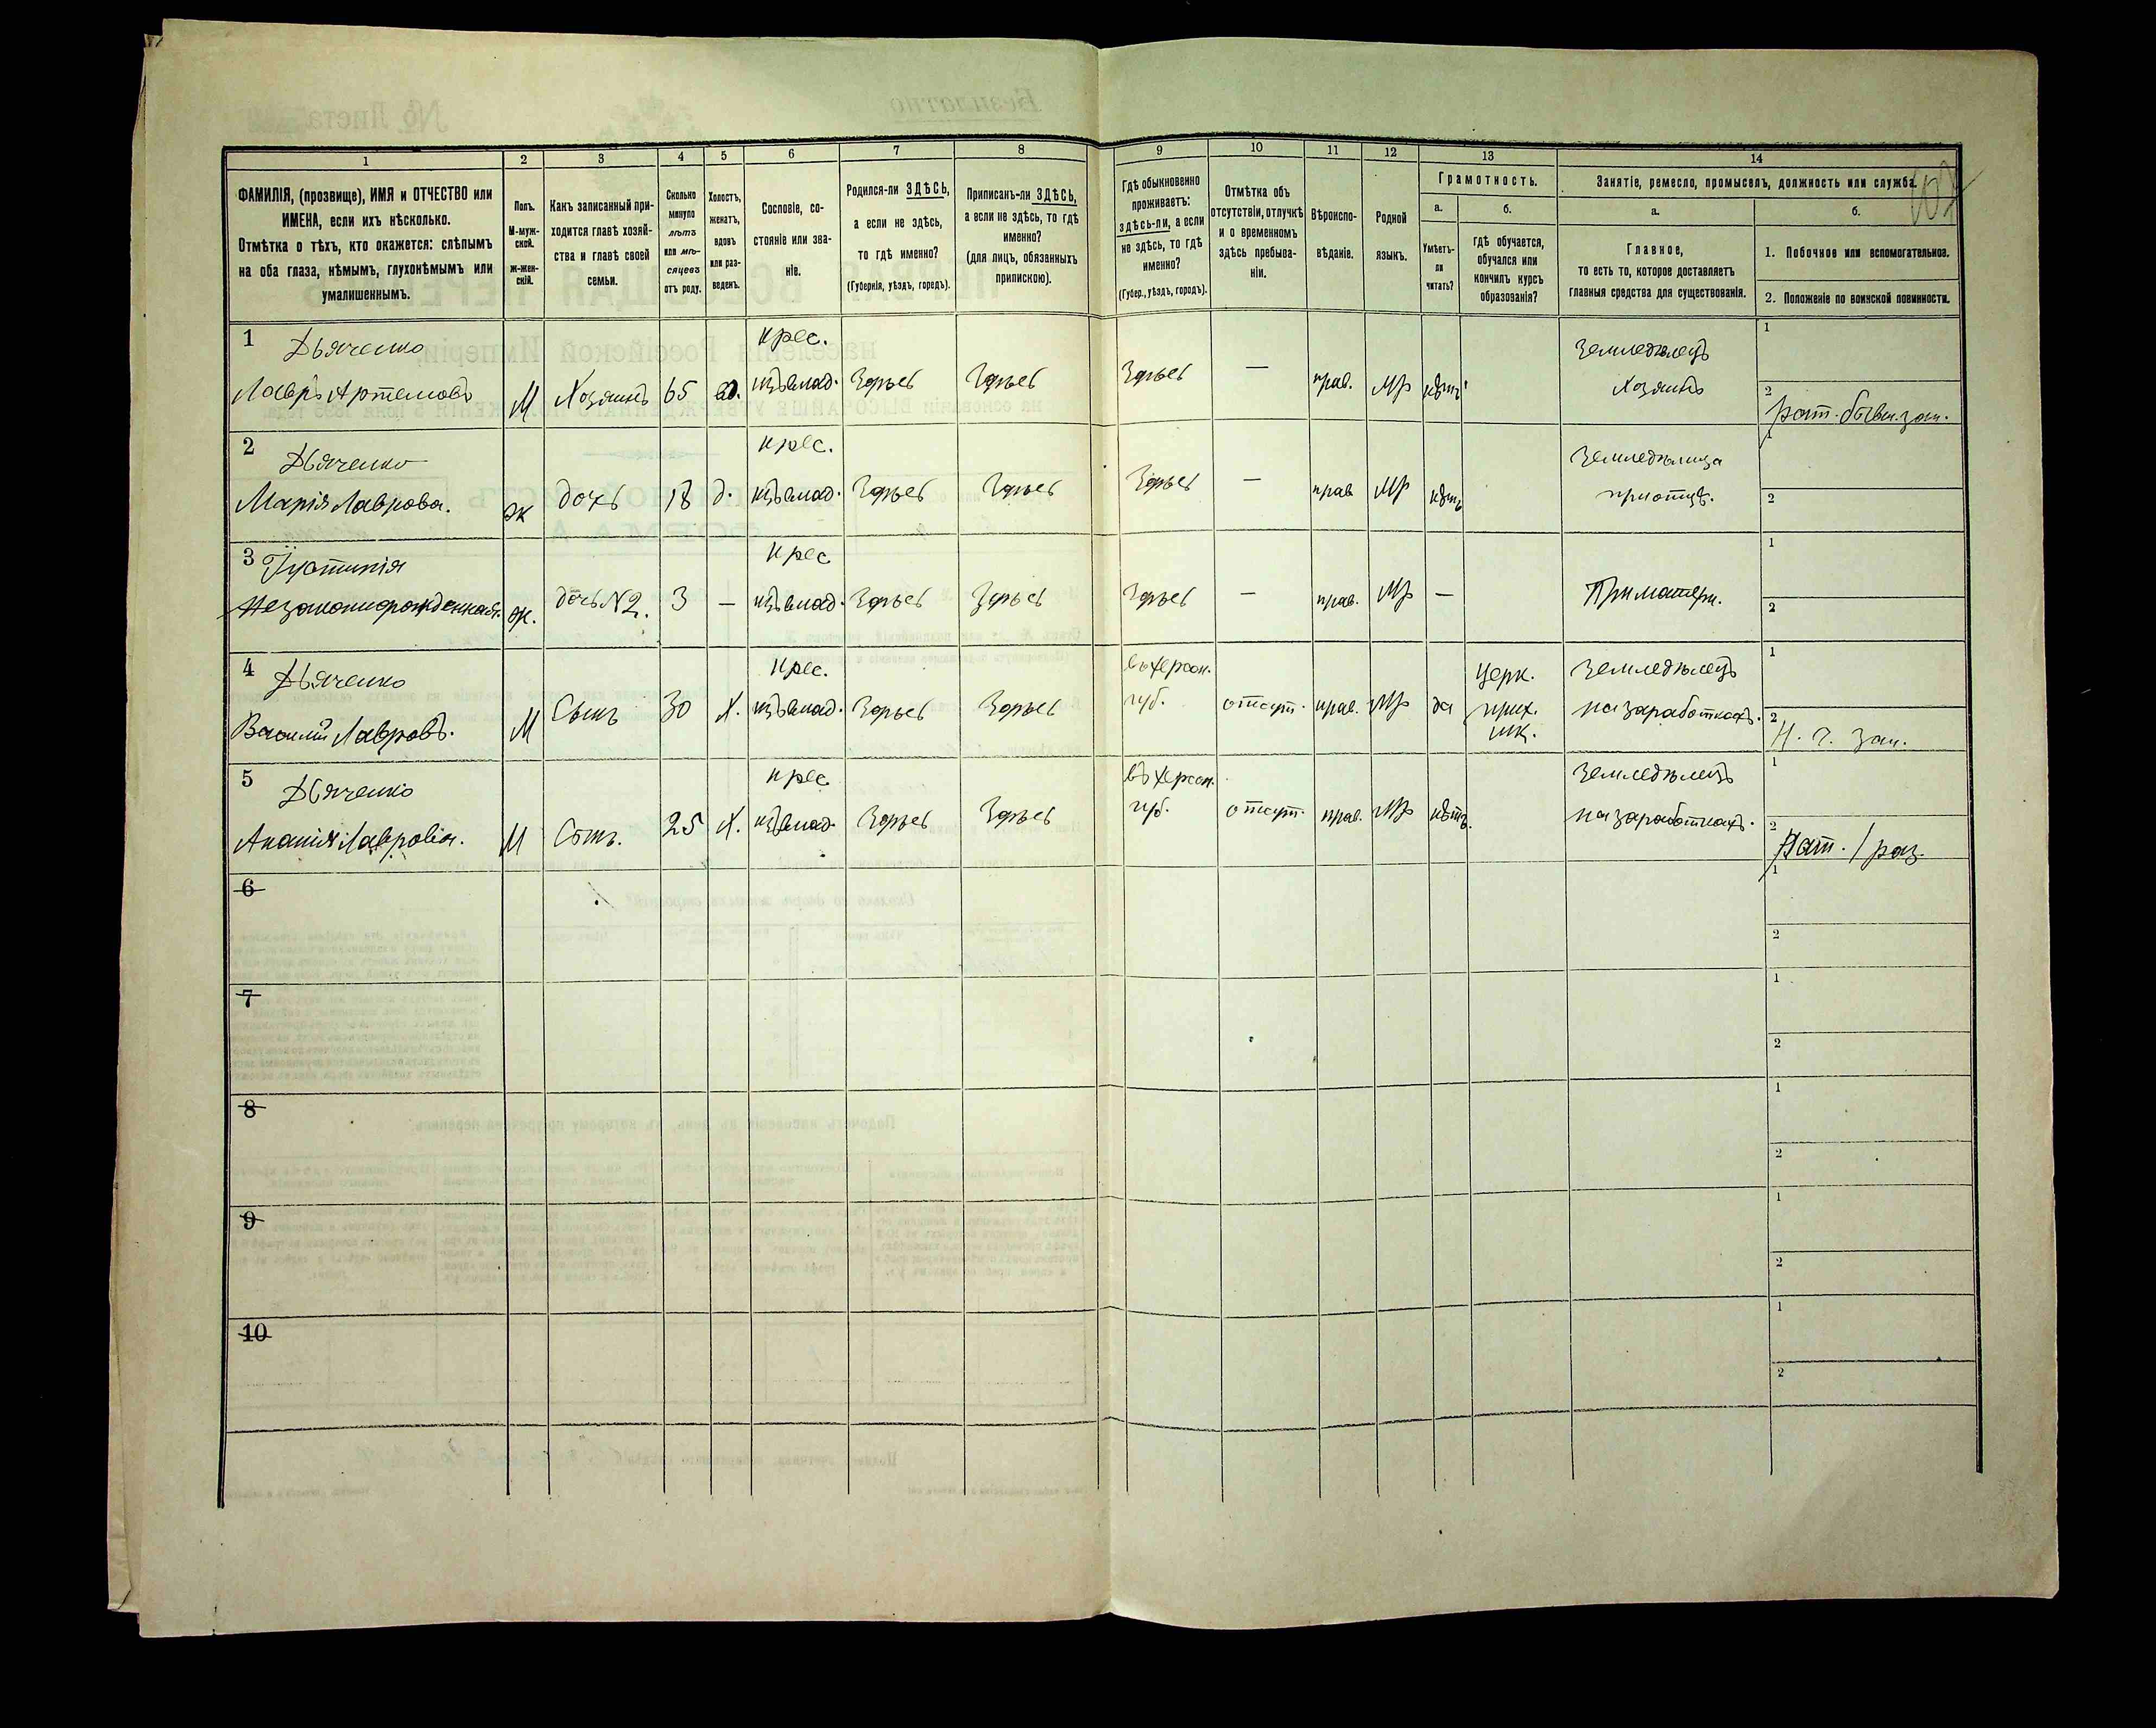 1 2 3 4 5 6 7 8 9 10 11 12 13 14
ФАМИЛІЯ, (прозвище), ИМЯ и ОТЧЕСТВО или
ИМЕНА, если ихъ нѣсколько.
Отмѣтка о тѣхъ, кто окажется: слѣпымъ
на оба глаза, нѣмымъ, глухонѣмымъ или
умалишеннымъ.
Полъ.
М-муж-
ской.
ж-жен-
скій.
Какъ записанный при-
ходится главѣ хозяй-
ства и главѣ своей
семьи.
Сколько
минуло
лѣтъ
или мѣ-
сяцевъ
отъ роду.
Холостъ,
женатъ,
вдовъ
или раз-
веденъ.
Сословіе, со-
стояніе или зва-
ніе.
Родился-ли ЗДѢСЬ,
а если не здѣсь,
то гдѣ именно?
(Губернія, уѣздъ, городъ).
Приписанъ-ли ЗДѢСЬ,
а если не здѣсь, то гдѣ
именно?
(для лицъ, обязанныхъ
припискою).
Гдѣ обыкновенно
проживаетъ:
здѣсь-ли, а если
не здѣсь, то гдѣ
именно?
(Губер., уѣздъ, городъ).
Отмѣтка объ
отсутствіи, отлучкѣ
и о временномъ
здѣсь пребыва-
ніи.
Вѣроиспо-
вѣданіе.
Родной
языкъ.
Грамотность.
а.
Умѣетъ-
ли
читать?
б.
гдѣ обучается,
обучался или
кончилъ курсъ
образованія?
Занятіе, ремесло, промыселъ, должность или служба.
а.
Главное,
то есть то, которое доставляетъ
главныя средства для существованія.
б.
1. Побочное или вспомогательное.
2. Положеніе по воинской повинности.
1 Дьяченко крес. Земледѣлецъ 1
Лавръ Артемовъ М Хозяинъ 65 вд. изъ влад. Здѣсь Здѣсь Здѣсь — прав. Мр нѣтъ Хозяинъ 2
2 Дьяченко крес. Земледѣлица 1
Марія Лаврова. ж дочь 18 д. изъ влад. Здѣсь Здѣсь Здѣсь — прав Мр нѣтъ при отцѣ. 2
3 Іустинія крес 1
Незаконнорожденная. ж. дочь N2. 3 — изъ влад. Здѣсь Здѣсь Здѣсь — прав. Мр — При матери. 2
4 Дьяченко крес. въ херсон. церк. Земледѣлецъ 1
Василій Лавровъ. М Сынъ 30 Х. изъ влад. Здѣсь Здѣсь губ. отсут. прав. Мр да прих. на заработкахъ. 2
шк. Н. ч. зап.
5 Дьяченко крес въ херсон. Земледѣлецъ 1
Ананія Лавровъ. М Сынъ. 25 Х. изъ влад. Здѣсь Здѣсь губ. отсут. прав. Мр нѣтъ. на заработкахъ. 2
Рат. 1 раз.
6 1
2
7 1
2
8 1
2
9 1
2
10 1
2